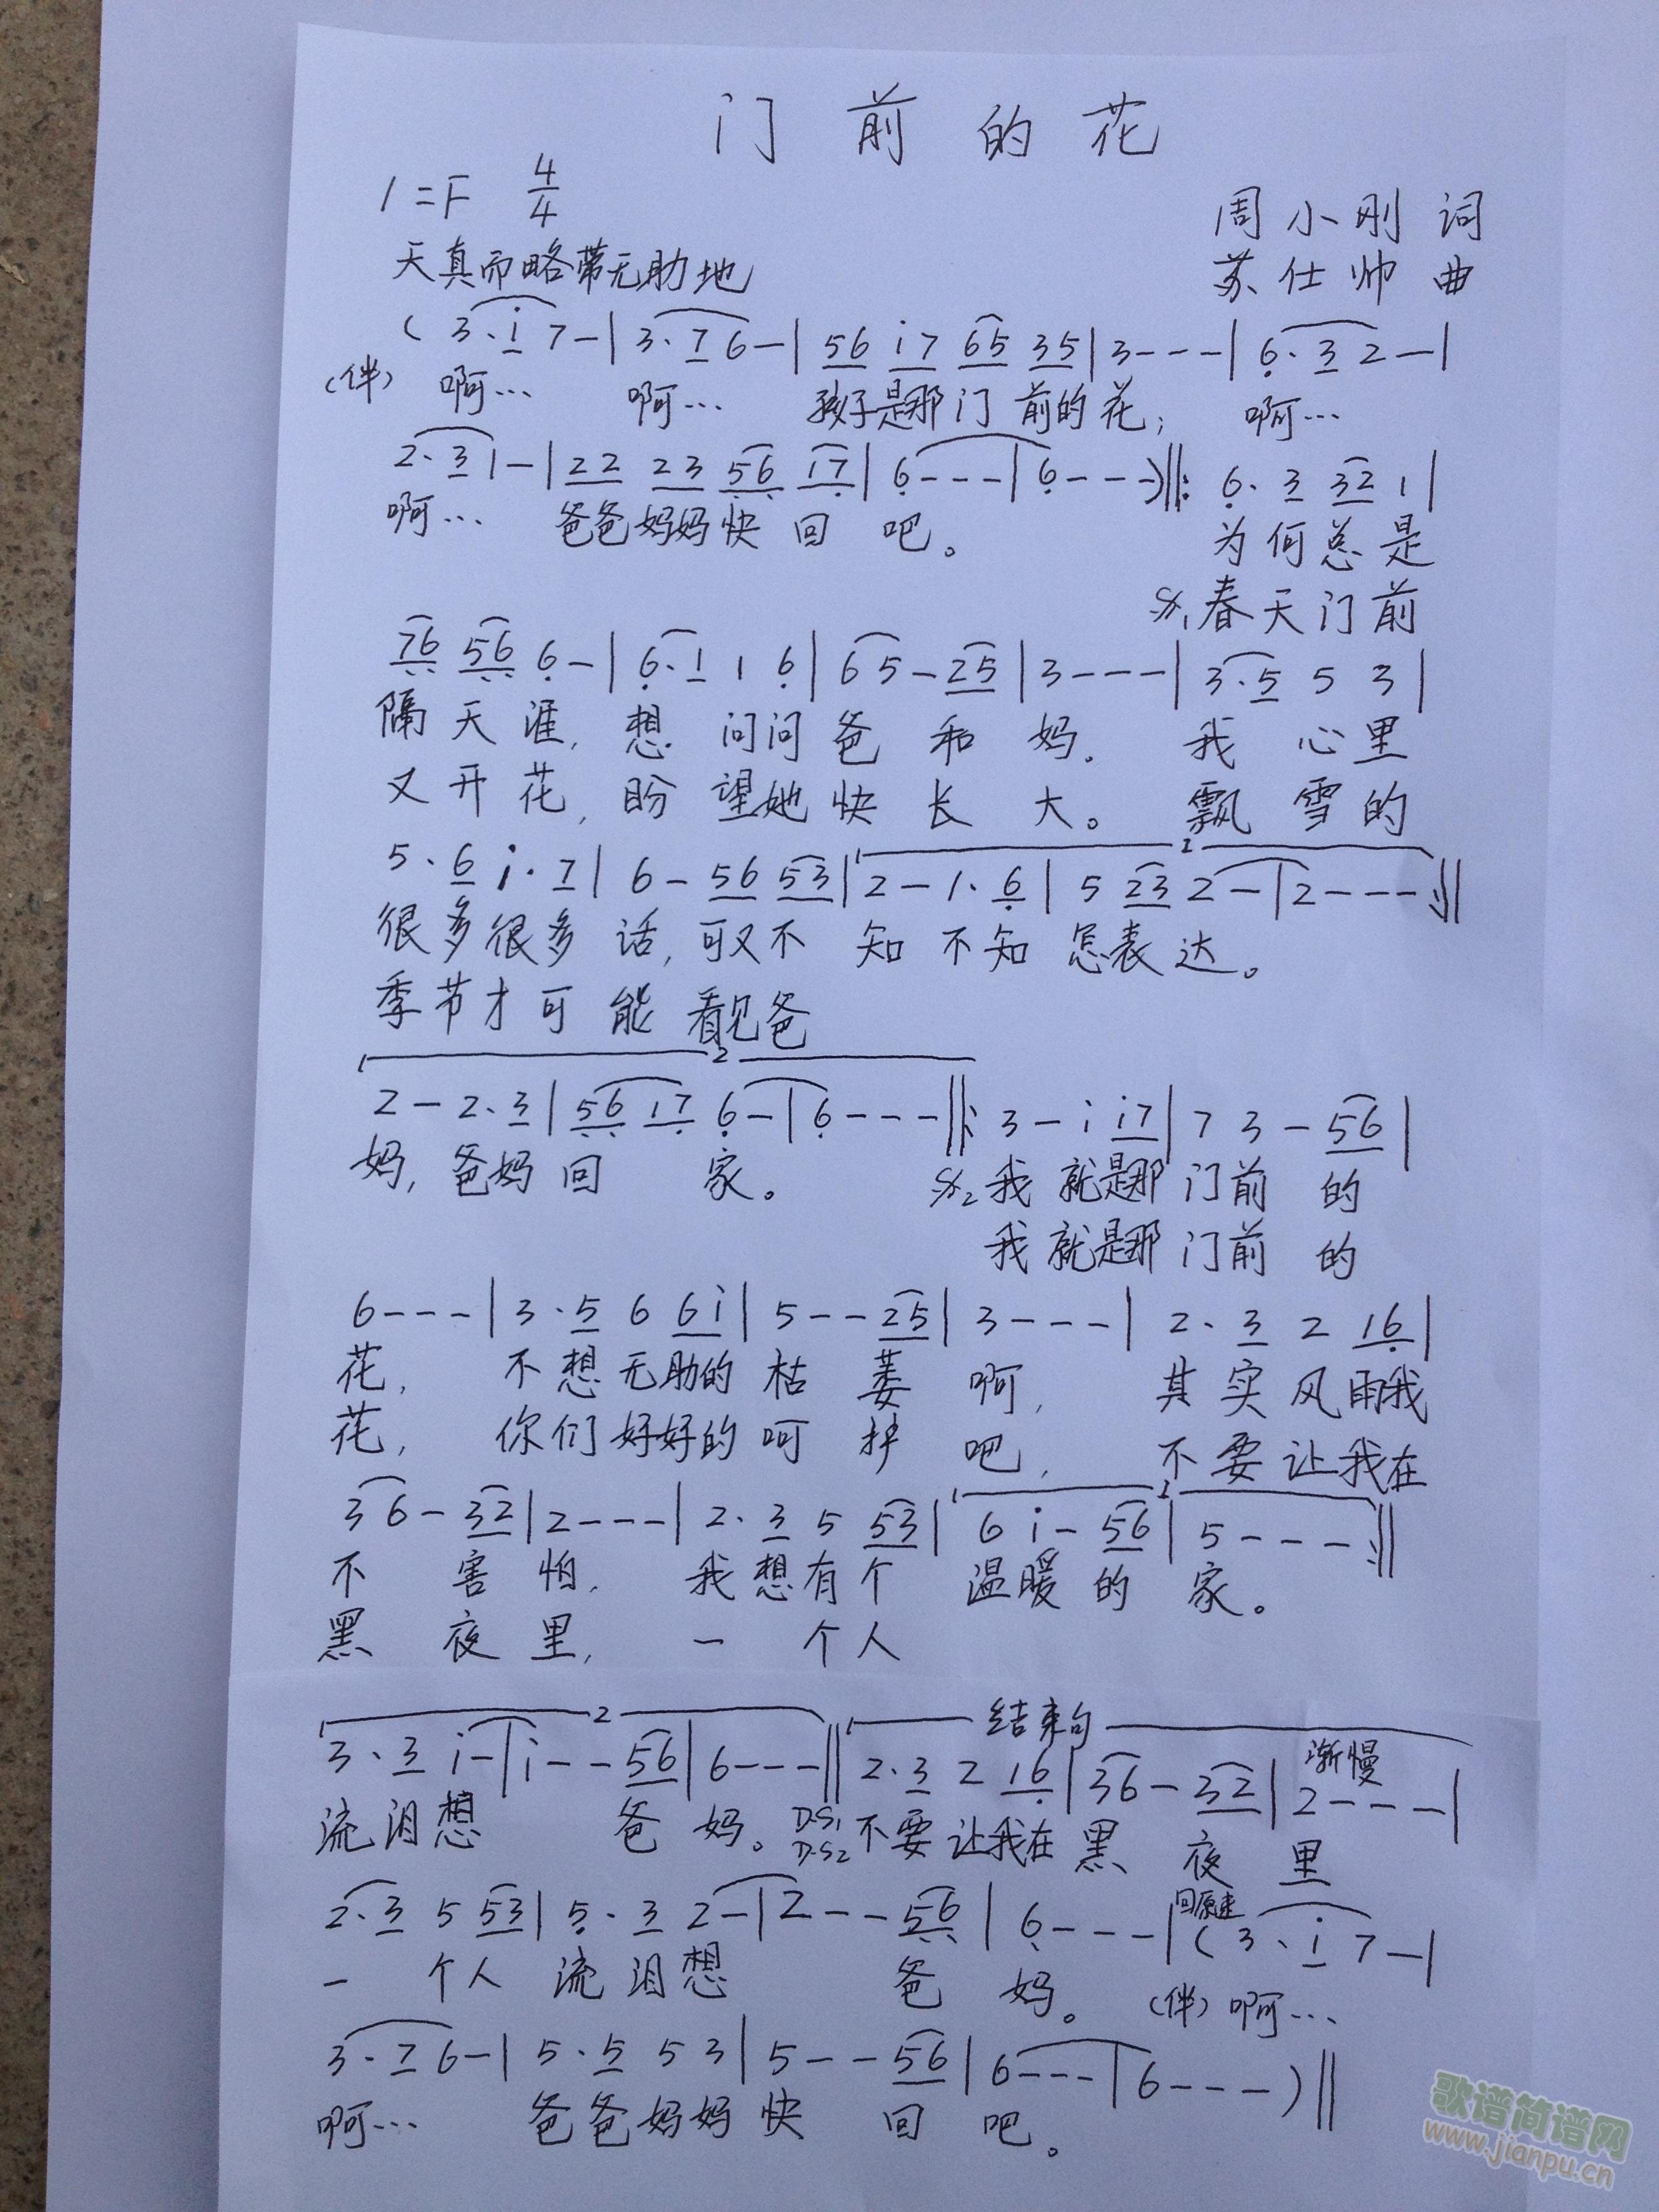 门前的花
1=F 4/4
周小刚 词
天真而略带无助地
苏仕帅 曲
( 3·i 7 - | 3·7 6 - | 56 i7 65 35 | 3 - - - | 6·3 2 - |
(伴) 啊… 啊… 孩子是那门前的花; 啊…
2·3 1 - | 22 23 56 17 | 6 - - - | 6 - - - ) ‖: 6· 3 32 1 |
啊… 爸爸妈妈快回吧。 为何总是
𝄋1 春天门前
76 56 6 - | 6·1 1 6 | 6 5 - 25 | 3 - - - | 3·5 5 3 |
隔天涯, 想问问爸和妈. 我心里
又开花, 盼望她快长大。 飘雪的
5·6 i·7 | 6 - 56 53 | 1 2 - 1·6 | 5 23 2 - | 2 - - - :‖
很多很多话, 可又不知不知怎表达。
季节才可能看见爸
2
2 - 2·3 | 56 17 6 - | 6 - - - ‖: 3 - i i7 | 7 3 - 56 |
妈, 爸妈回家。 𝄋2 我就是那门前的
我就是那门前的
6 - - - | 3·5 6 6i | 5 - - 25 | 3 - - - | 2·3 2 16 |
花, 不想无助的枯萎啊, 其实风雨我
花, 你们好好的呵护吧, 不要让我在
3 6 - 32 | 2 - - - | 2·3 5 53 | 1 6 i - 56 | 5 - - - :‖
不害怕, 我想有个温暖的家。
黑夜里, 一个人
2 结束句
3·3 i - | i - - 56 | 6 - - - ‖ 2·3 2 16 | 36 - 32 | 渐慢 2 - - - |
流泪想爸妈。 D.S1 D.S2 不要让我在黑夜里
2·3 5 53 | 5·3 2 - | 2 - - 56 | 6 - - - | 回原速 ( 3·i 7 - |
一个人流泪想爸妈。 (伴) 啊…
3·7 6 - | 5·5 5 3 | 5 - - 56 | 6 - - - | 6 - - - ) ‖
啊… 爸爸妈妈快回吧。
歌谱简谱网
www.jianpu.cn